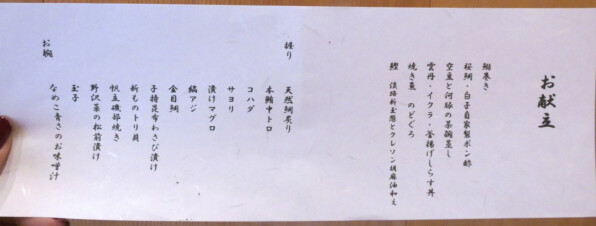 お献立
鯛巻き
桜鯛・白子自家製ポン酢
空豆と河豚の茶碗蒸し
雲丹・イクラ・釜揚げしらす丼
焼き魚 のどぐろ
鰹 淡路新玉葱とクレソン胡麻油和え
握り
天然鯛炙り
本鮪中トロ
コハダ
サヨリ
漬けマグロ
縞アジ
金目鯛
子持昆布わさび漬け
新ものトリ貝
帆立磯部焼き
野沢菜の松前漬け
玉子
お椀
なめこ青さのお味噌汁